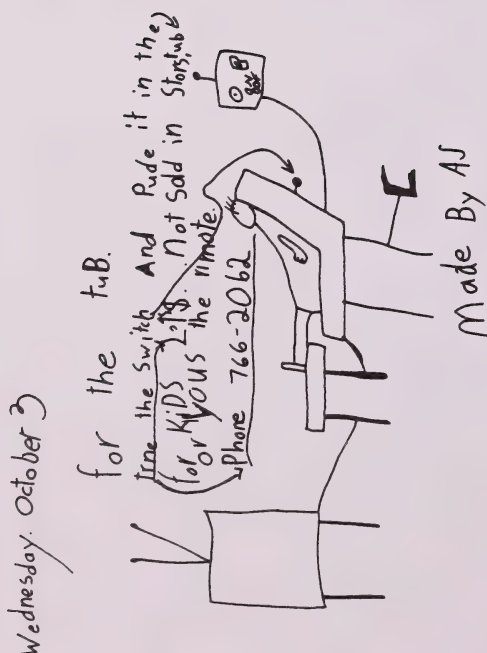 Wednesday. October 3
for the tuB.
trne the Switch And Pude it in the
for KiDS 2.1$. Not Sold in
or yous the rimote.
Phone 766-2062
Made By AJ